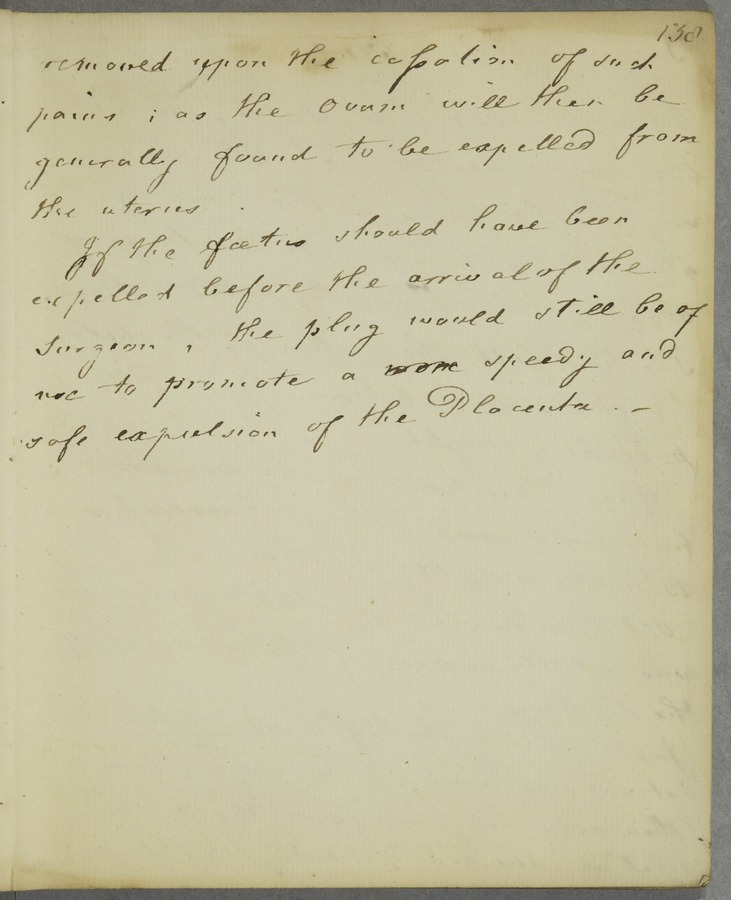 138
removed upon the cessation of such
pains ; as the Ovum will then be
generally found to be expelled from
the uterus .
If the foetus should have been
expelled before the arrival of the
surgeon , the plug would still be of
use to promote a more speedy and
safe expulsion of the Placenta . -